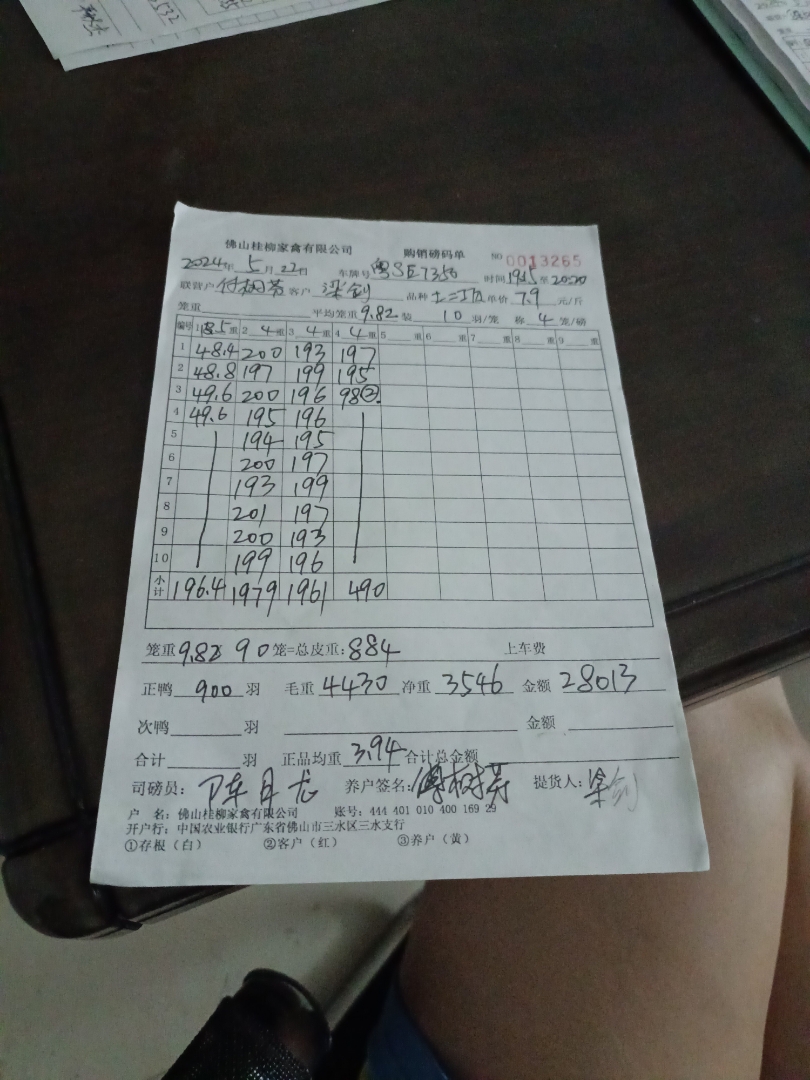 佛山桂柳家禽有限公司 购销磅码单 NO 0013265
2024年 5月 22日 车牌号 粤SE7356 时间 1915 至 2020
联营户 客户 梁剑 品种 单价 7.9 元/斤
笼重 平均笼重 9.82 装 10 羽/笼 称 4 笼/磅
编号 1 18.5 重 2 4 重 3 4 重 4 4 重 5 重 6 重 7 重 8 重 9 重
1 48.4 200 193 197
2 48.8 197 199 195
3 49.6 200 196 98②
4 49.6 195 196
5 194 195
6 200 197
7 193 199
8 201 197
9 200 193
10 199 196
小计 196.4 1979 1961 490
笼重 9.82 90 笼=总皮重: 884 上车费
正鸭 900 羽 毛重 4430 净重 3546 金额 28013
次鸭 羽 金额
合计 羽 正品均重 3.94 合计总金额
司磅员: 养户签名: 傅树芬 提货人: 梁剑
户 名: 佛山桂柳家禽有限公司 账号: 444 401 010 400 169 29
开户行: 中国农业银行广东省佛山市三水区三水支行
①存根（白） ②客户（红） ③养户（黄）